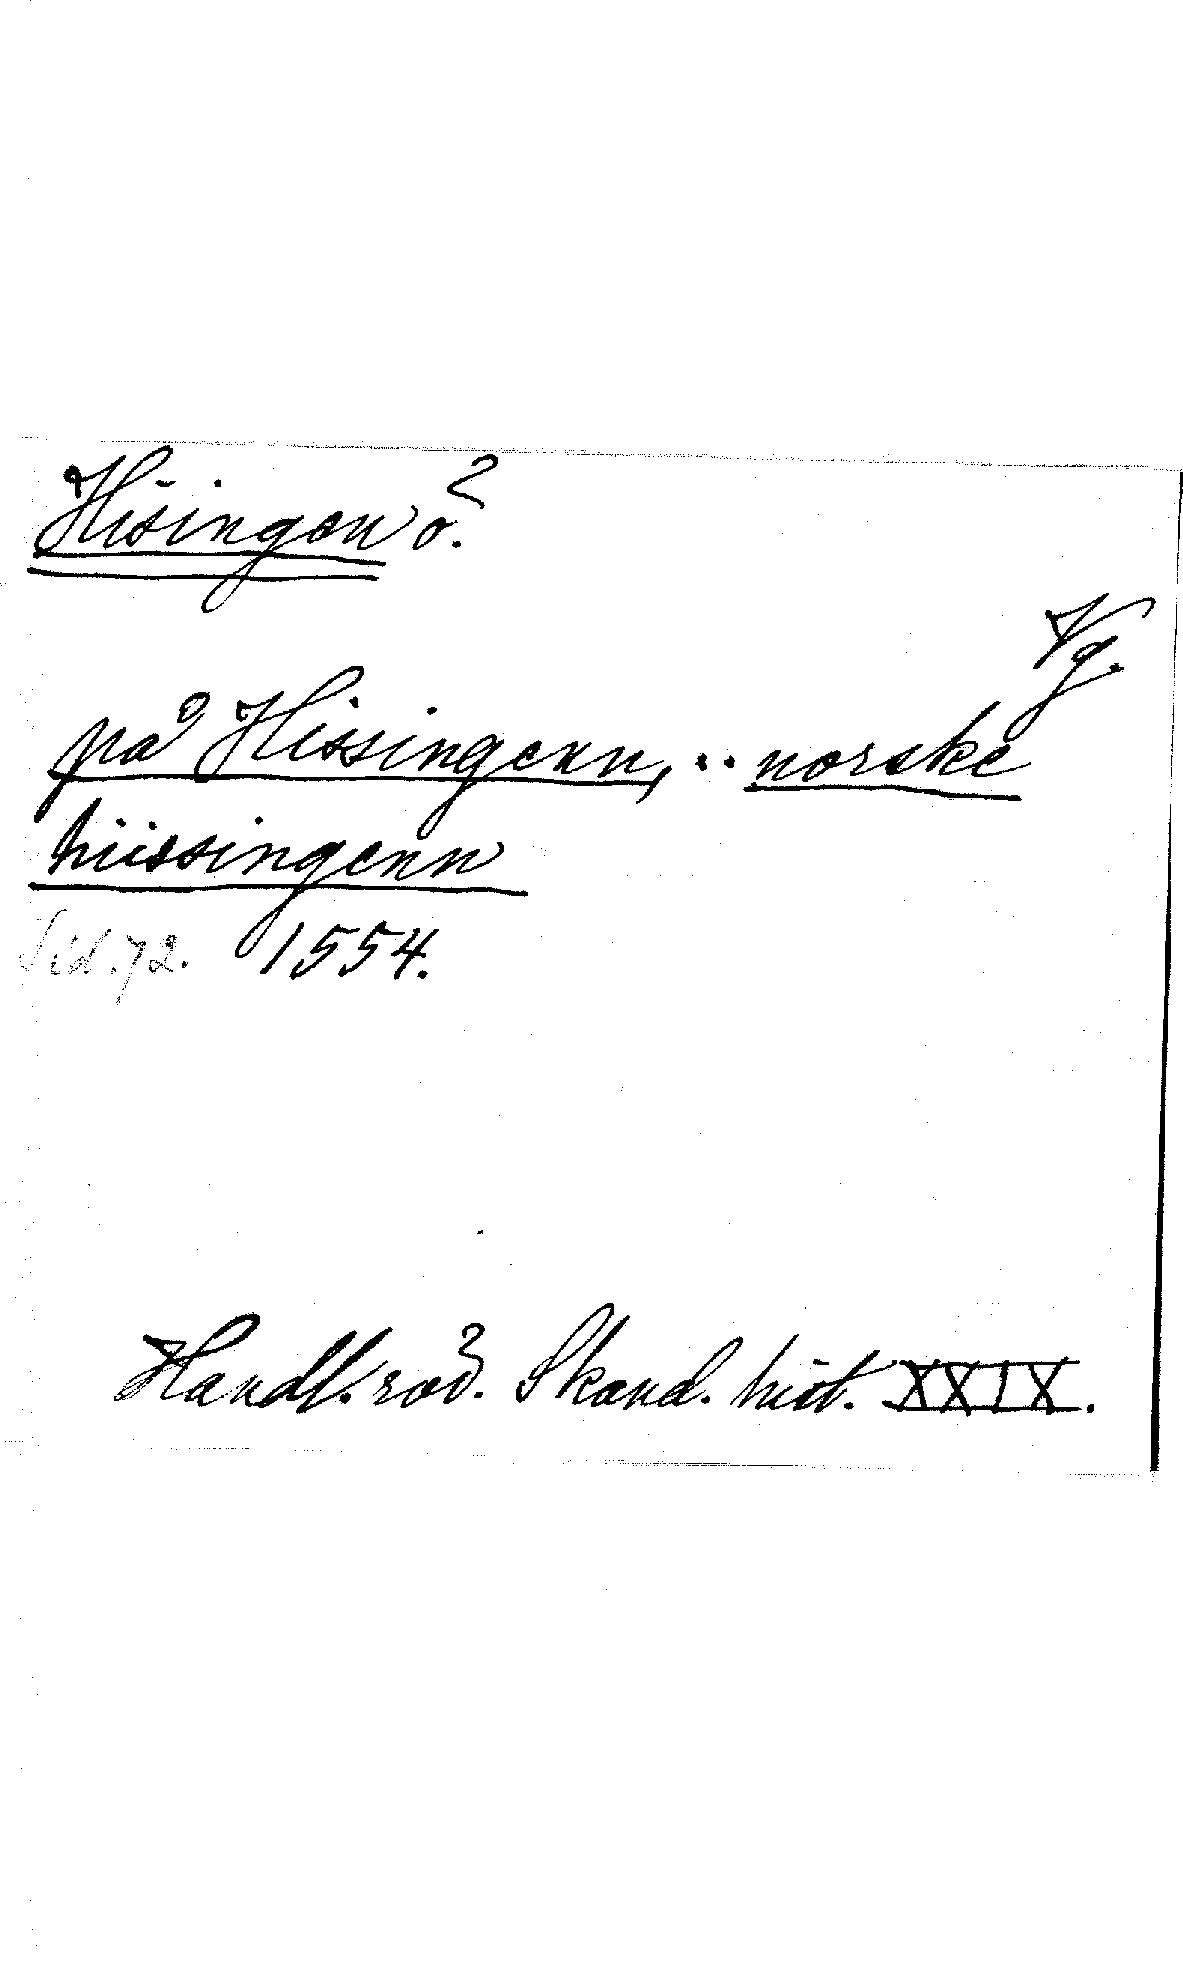 Hisingen ö.
Vg.
på Hissingenn, .. norske
hiissingenn
Sid. 72. 1554.
Handl. rör. Skand. hist. XXIX.